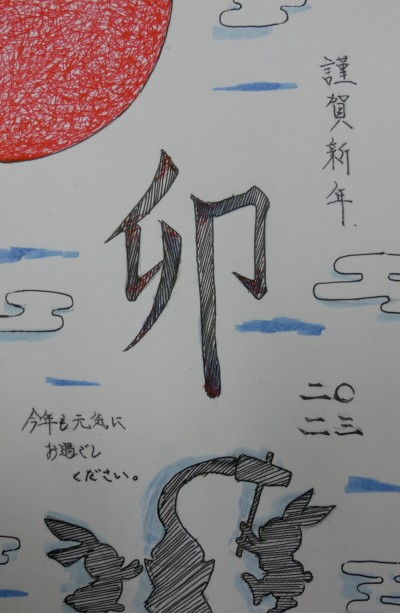 謹賀新年.
卯
二〇
二三
今年も元気に
お過ごし
ください。